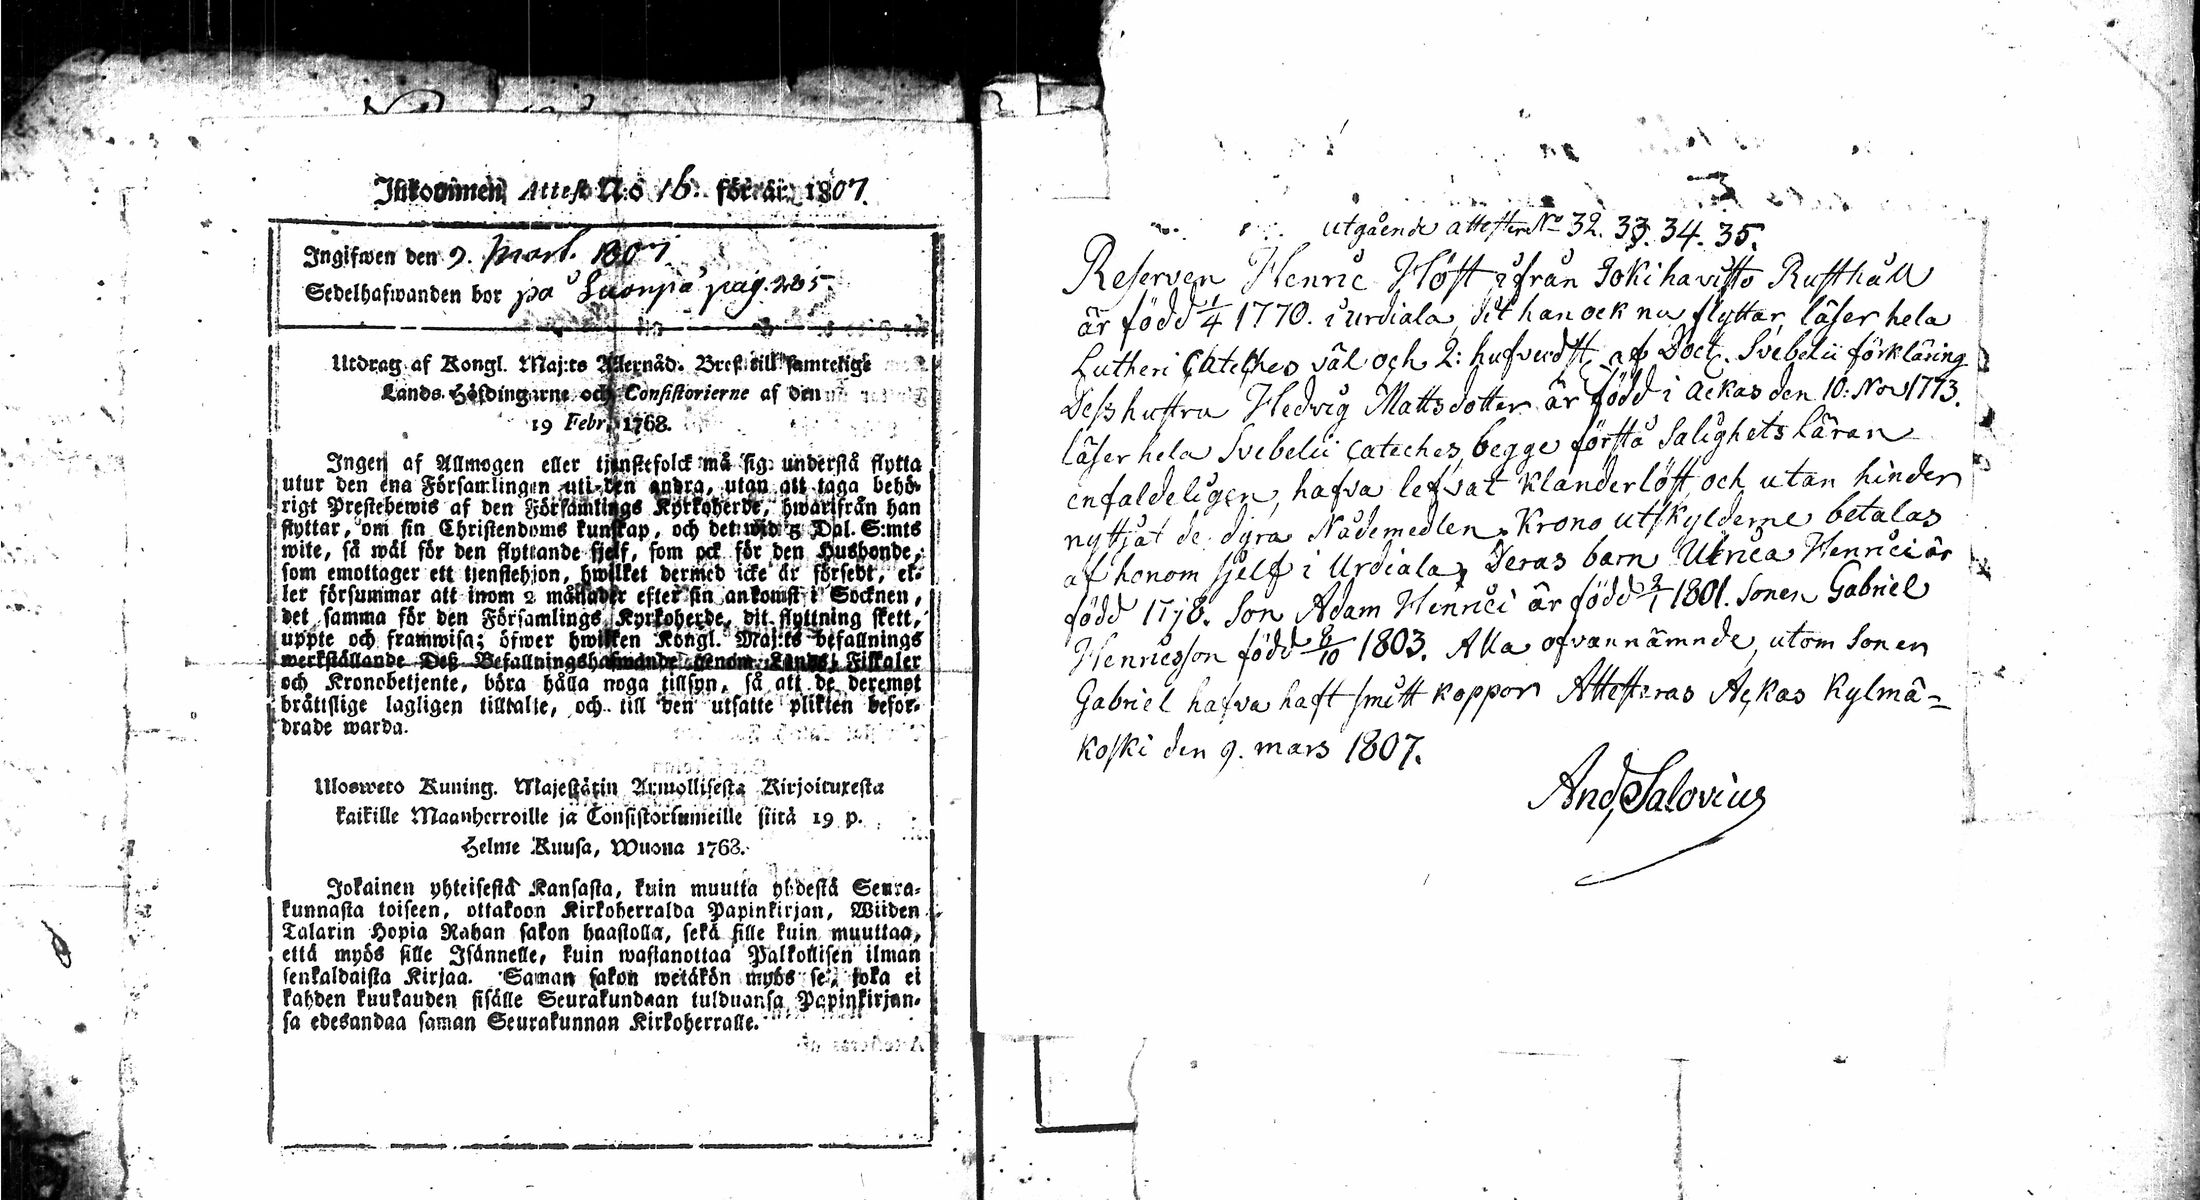 Inkommen Attest N:o 16. för år 1807.
Ingifwen den 9. Mart. 1807
Sedelhafwanden bor på Luonpä pag. 285.
Utdrag af Kongl. Maj:ts Allernåd. Bref till samtelige
Lands-Höfdingarne och Consistorierne af den
19 Febr. 1768.
Ingen af Allmogen eller tjenstefolck må sig understå flytta
utur den ena Församlingen uti den andra, utan att taga behö-
rigt Prestebewis af den Församlings Kyrkoherde, hwarifrån han
flyttar, om sin Christendoms kunskap, och det wid 5 Dal. S:mts
wite, så wäl för den flyttande sjelf, som ock för den Husbonde,
som emottager ett tjenstehjon, hwilket dermed icke är försedt, el-
ler försummar att inom 2 månader efter sin ankomst i Socknen,
det samma för den Församlings Kyrkoherde, dit flyttning skett,
uppte och framwisa; öfwer hwilken Kongl. Maj:ts befallnings
werkställande Deß Befallningshafwande genom Lands-Fiskaler
och Kronobetjente, böra hålla noga tillsyn, så att de deremot
bråttslige lagligen tilltalte, och till den utsatte plikten befor-
drade warda.
Ulosweto Kuning. Majestätin Armollisesta Kirjoituxesta
kaikille Maanherroille ja Consistoriumeille siitä 19 p.
Helme Kuusa, Wuona 1768.
Jokainen yhteisestä Kansasta, kuin muutta yhdestä Seura-
kunnasta toiseen, ottakoon Kirkoherralda Papinkirjan, Wiiden
Talarin Hopia Rahan sakon haastolla, sekä sille kuin muuttaa,
että myös sille Isännelle, kuin wastanottaa Palkollisen ilman
senkaldaista Kirjaa. Saman sakon wetäkön myös se, joka ei
kahden kuukauden sisälle Seurakundaan tulduansa Papinkirjan-
sa edesandaa saman Seurakunnan Kirkoherralle.
utgående attester No 32. 33. 34. 35.
Reserven Henric Höst ifrån Jokihavisto Rusthåll
är född 1/4 1770. i Urdiala, dit han ock nu flyttar, läser hela
Lutheri Cateches väl och 2: hufvudst. af Doct. Svebelii förklaring
Dess hustru Hedvig Mattsdotter är född i Ackas den 10: Nov 1773.
läser hela Svebelii Cateches, begge förstå Salighets Läran
enfaldeligen, hafva lefvat klanderlöst, och utan hinder
nyttjat de dyra Nådemedlen. Krono utskylderne betalas
af honom sjelf i Urdiala, Deras barn Ulrica Henrici är
född 1798. Son Adam Henrici är född 2/1 1801. Sonen Gabriel
Henricsson född 8/10 1803. Alla ofvannämnde, utom Sonen
Gabriel hafva haft smitt koppor Attesteras Ackas Kylmä=
koski den 9. mars 1807.
And. Salovius